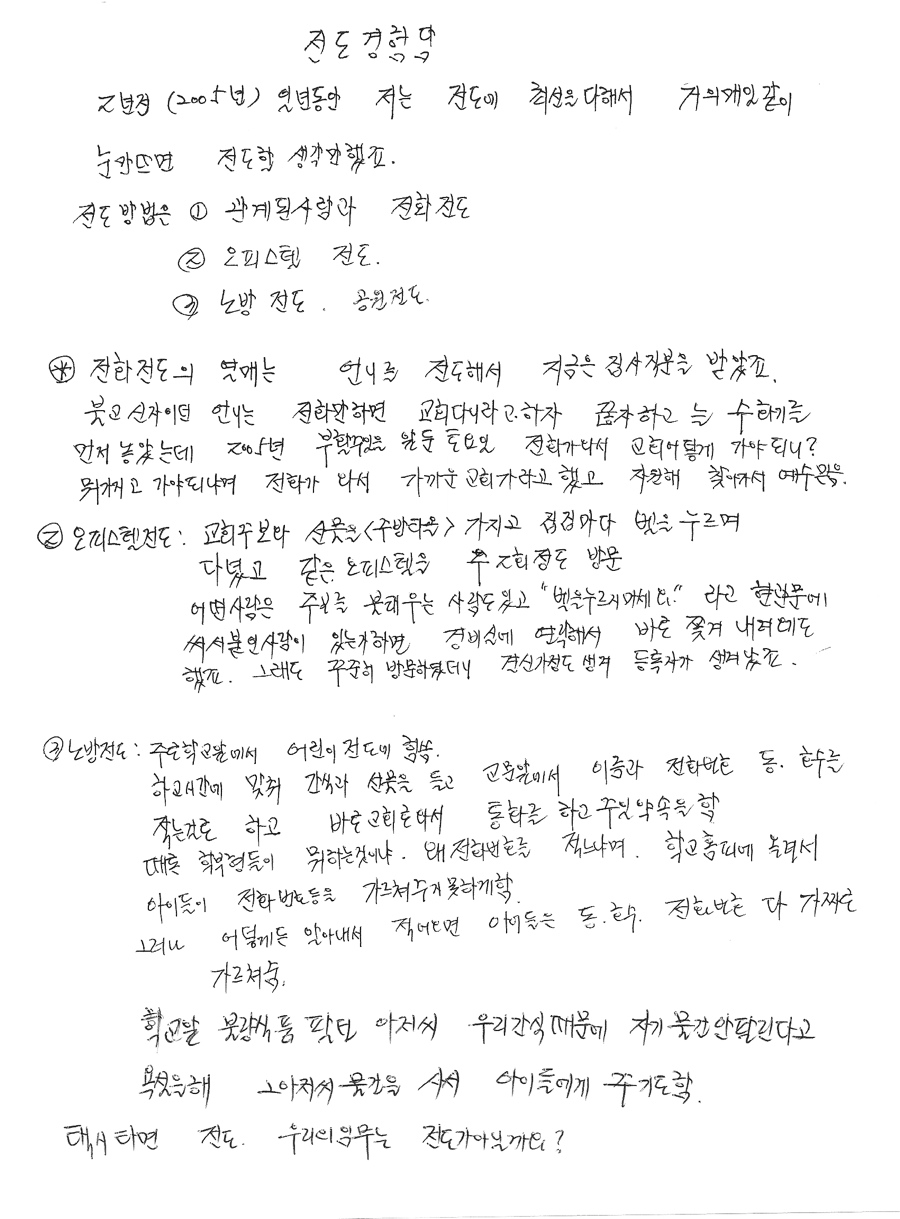 전도경험담
2년전 (2005년) 일년동안 저는 전도에 최선을다해서 거의매일같이
눈만뜨면 전도할 생각만했죠.
전도방법은 ① 관계된사람과 전화전도
② 오피스텔 전도.
③ 노방 전도. 공원전도.
㊛ 전화전도의 열매는 언니를 전도해서 지금은 집사직분을 받았죠.
불교신자이던 언니는 전화만하면 교회다니라고.하자 끊자하고 는 수화기를
먼저 놓았는데 2005년 부활주일을 앞둔 토요일 전화가와서 교회어떻게 가야되니?
뭐가지고 가야되냐며 전화가 와서 가까운교회가라고 했고 자원해 찾아가서 예수믿음.
② 오피스텔전도: 교회주보와 선물을<주방타올> 가지고 집집마다 벨을 누르며
다녔고 같은 오피스텔을 주 2회정도 방문
어떤사람은 주보를 불태우는 사람도있고 "벨을누르지마세요." 라고 현관문에
써서붙인사람이 있는가하면 경비실에 연락해서 바로 쫓겨 내려오기도
했죠. 그래도 꾸준히 방문하였더니 결신가정도생겨 등록자가 생겨났죠.
③ 노방전도: 주로학교앞에서 어린이전도에 힘씀.
하교시간에 맞춰 간식과 선물을 들고 교문앞에서 이름과 전화번호 동. 호수를
적는것을 하고 바로교회로와서 통화를 하고 주일약속을함
때론 학부형들이 뭐하는것이냐. 왜전화번호를 적느냐며. 학교홈피에 올려서
아이들이 전화번호등을 가르쳐주지못하게함.
그러나 어떻게든 알아내서 적어보면 아이들은 동.호수. 전화번호 다 가짜로
가르쳐줌.
학교앞 불량식품 팔던 아저씨 우리간식때문에 자기물건안팔린다고
욕설을해 그아저씨물건을 사서 아이들에게 주기도함.
택시타면 전도. 우리의임무는 전도가아닐까요?